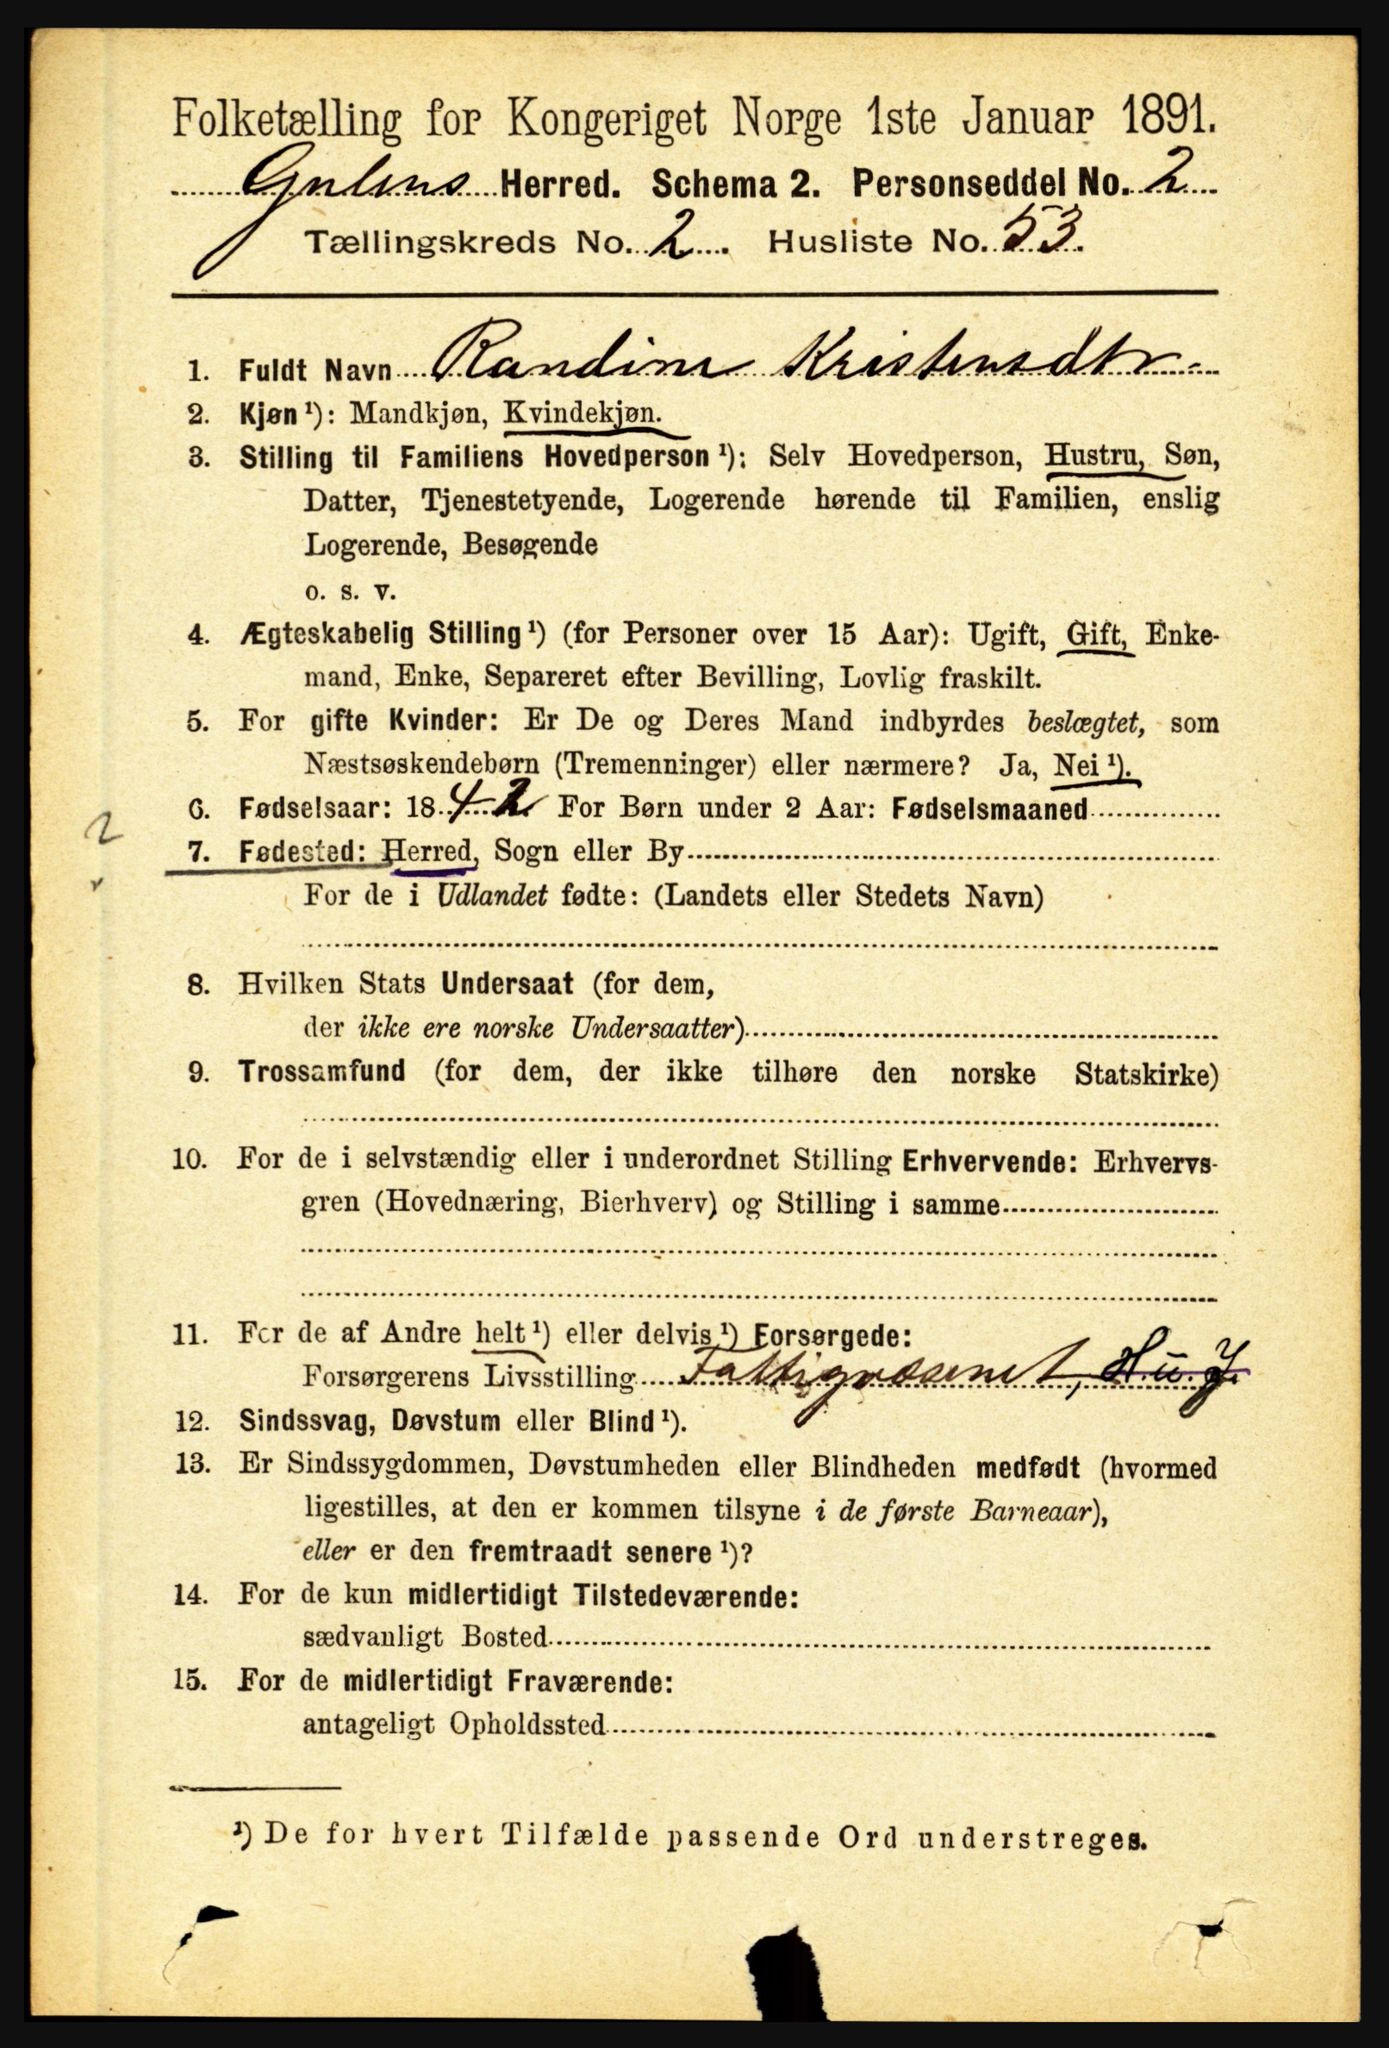 Folketælling for Kongeriget Norge 1ste Januar 1891.
Gulens Herred. Schema 2. Personseddel No. 2
Tællingskreds No. 2. Husliste No. 53.
1. Fuldt Navn Randine Kristensdtr.
2. Kjøn¹): Mandkjøn, Kvindekjøn.
3. Stilling til Familiens Hovedperson¹): Selv Hovedperson, Hustru, Søn,
Datter, Tjenestetyende, Logerende hørende til Familien, enslig
Logerende, Besøgende
o. s. v.
4. Ægteskabelig Stilling¹) (for Personer over 15 Aar): Ugift, Gift, Enke-
mand, Enke, Separeret efter Bevilling, Lovlig fraskilt.
5. For gifte Kvinder: Er De og Deres Mand indbyrdes beslægtet, som
Næstsøskendebørn (Tremenninger) eller nærmere? Ja, Nei¹).
6. Fødselsaar: 1842 For Børn under 2 Aar: Fødselsmaaned
2
7. Fødested: Herred, Sogn eller By
For de i Udlandet fødte: (Landets eller Stedets Navn)
8. Hvilken Stats Undersaat (for dem,
der ikke ere norske Undersaatter)
9. Trossamfund (for dem, der ikke tilhøre den norske Statskirke)
10. For de i selvstændig eller i underordnet Stilling Erhvervende: Erhvervs-
gren (Hovednæring, Bierhverv) og Stilling i samme
11. For de af Andre helt¹) eller delvis¹) Forsørgede:
Forsørgerens Livsstilling Fattigvæsenet, H. u. J.
12. Sindssvag, Døvstum eller Blind¹).
13. Er Sindssygdommen, Døvstumheden eller Blindheden medfødt (hvormed
ligestilles, at den er kommen tilsyne i de første Barneaar),
eller er den fremtraadt senere¹)?
14. For de kun midlertidigt Tilstedeværende:
sædvanligt Bosted
15. For de midlertidigt Fraværende:
antageligt Opholdssted
¹) De for hvert Tilfælde passende Ord understreges.